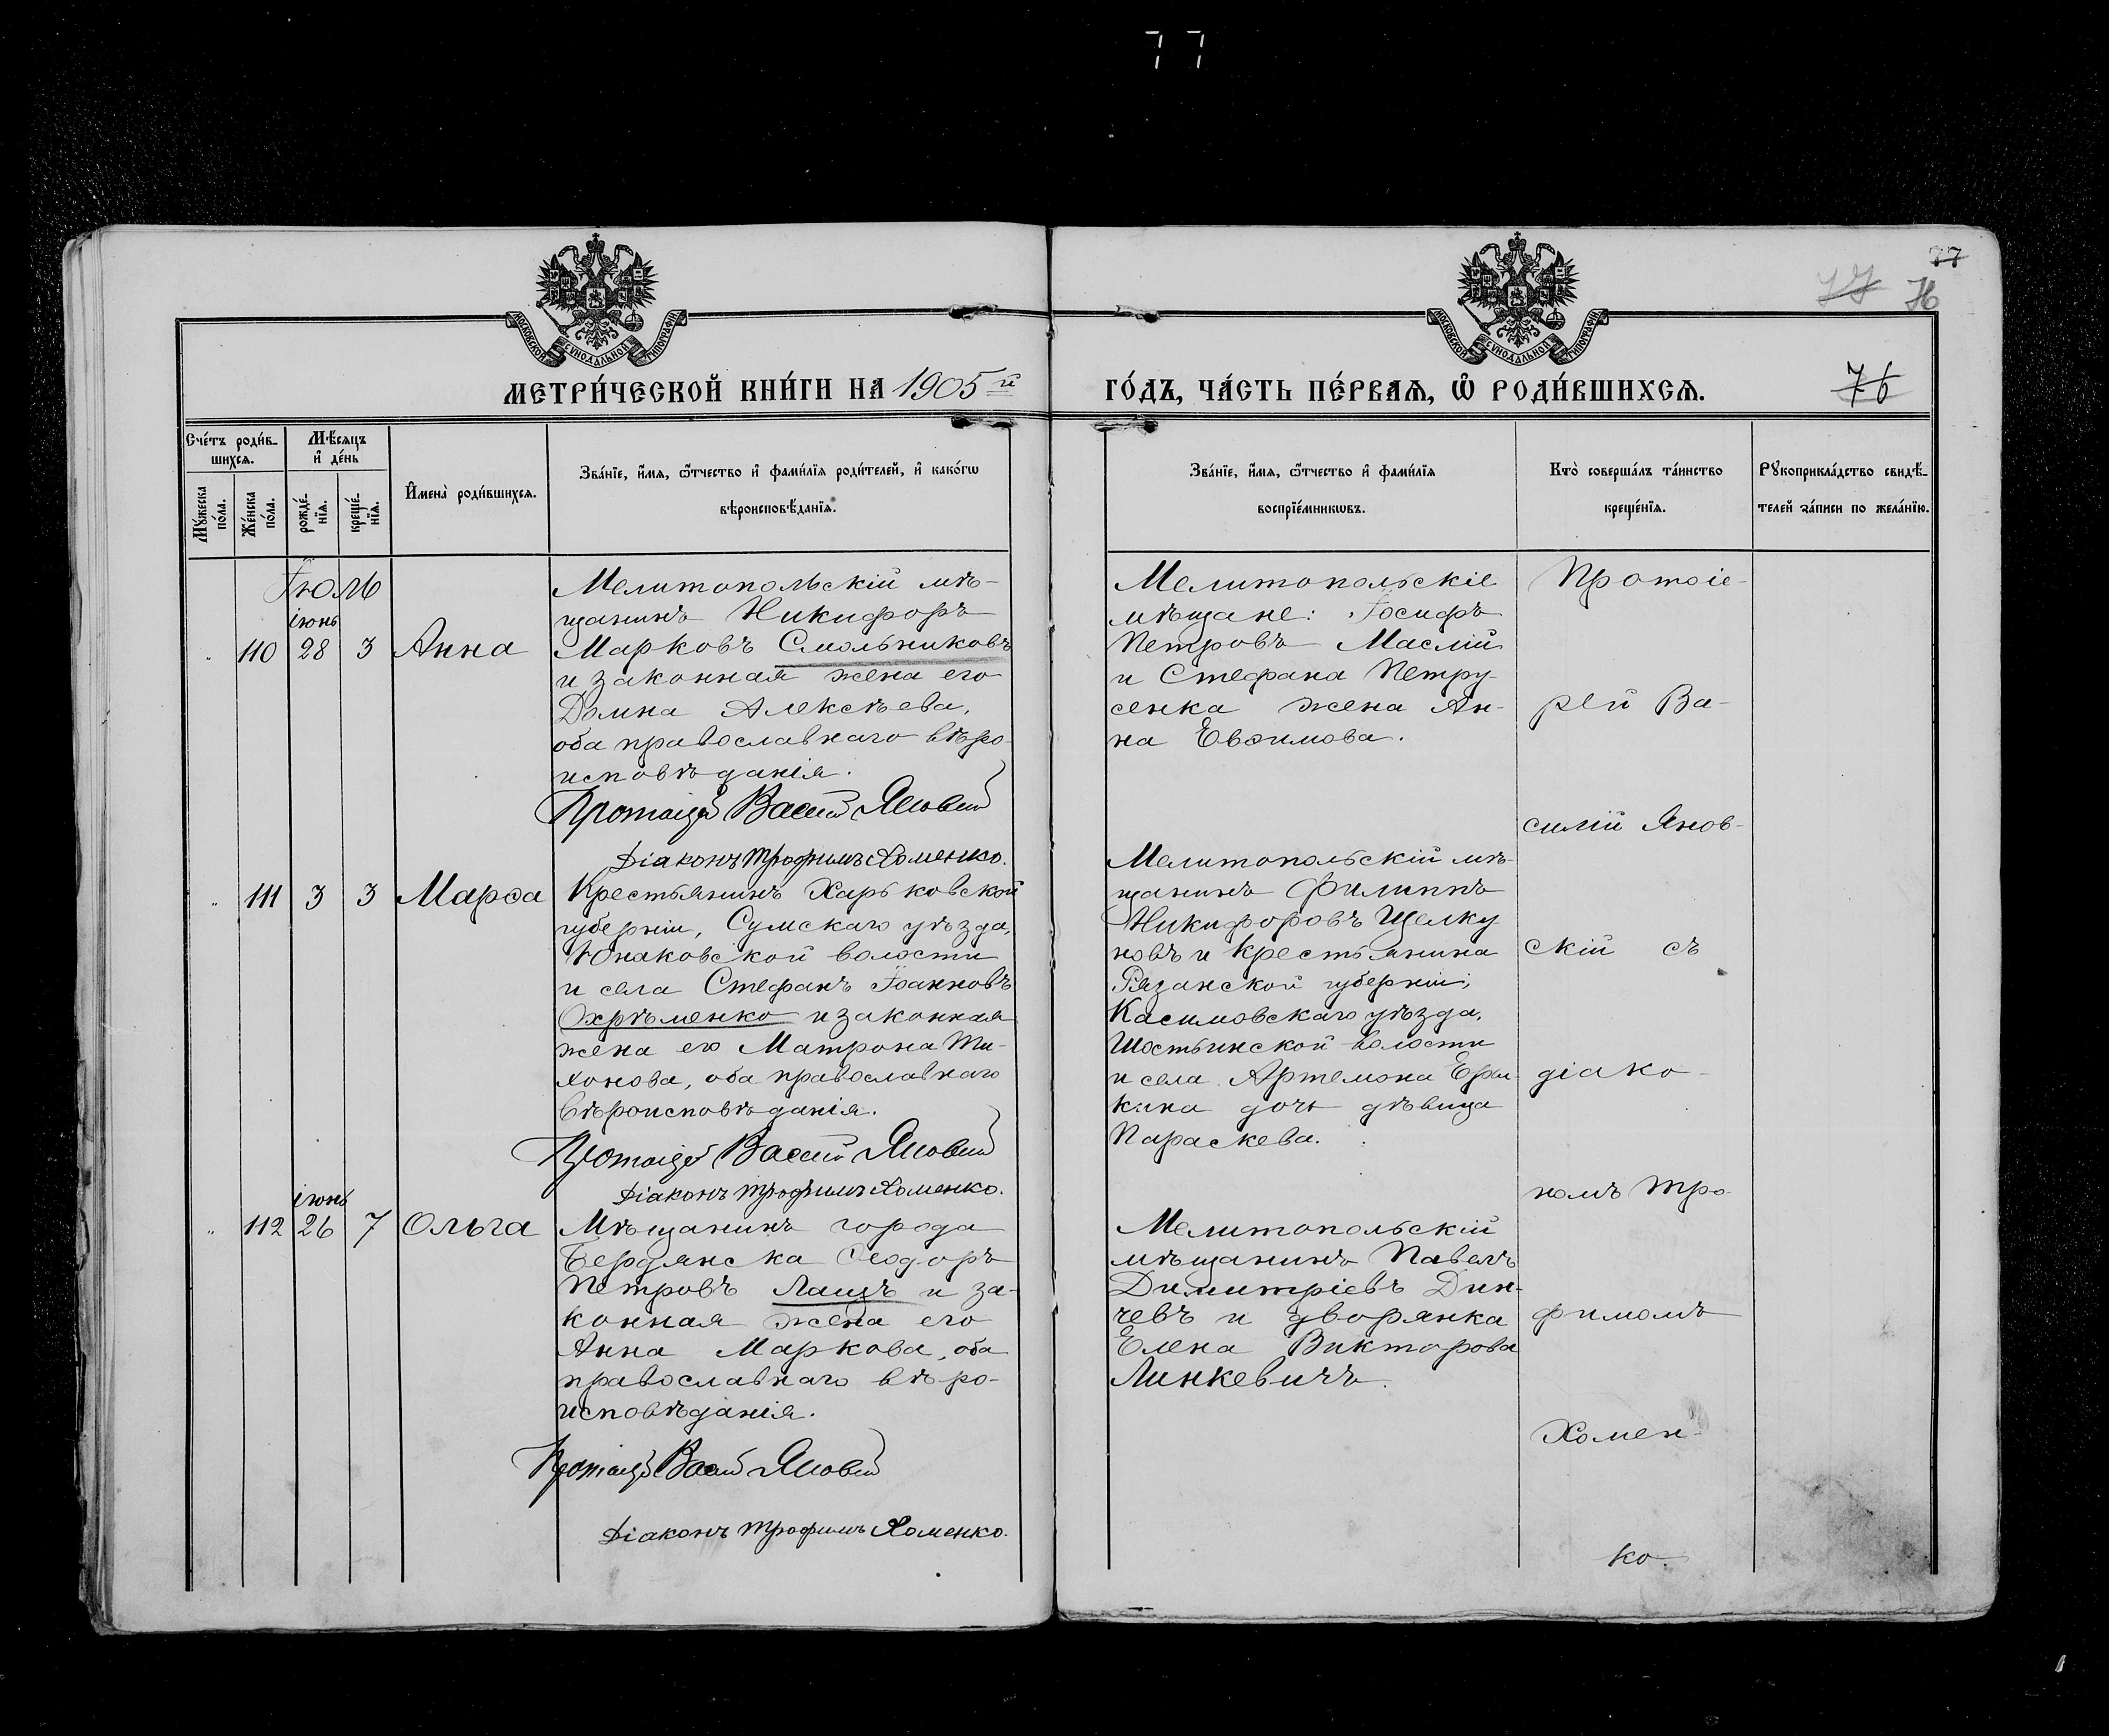 77
77
77
76
МОСКОВСКОЙ СѴНОДАЛЬНОЙ ТИПОГРАФІИ
МОСКОВСКОЙ СѴНОДАЛЬНОЙ ТИПОГРАФІИ
МЕТРИ́ЧЕСКОЙ КНИ́ГИ НА 1905й
ГО́ДЪ, ЧА́СТЬ ПЕ́РВАѦ, Ѽ РОДИ́ВШИХСѦ.
76
Сче́тъ роди́в-
шихсѧ.
Мꙋ́жеска
по́ла.
Же́нска
по́ла.
Мѣ́сѧцъ
и҆ де́нь
рожде́-
нїѧ.
креще́-
нїѧ.
И҆мена̀ роди́вшихсѧ.
Зва́нїе, и҆́мѧ, ѻ҆́тчество и҆ фами́лїѧ роди́телей, и҆ како́гѡ
вѣроисповѣ́данїѧ.
Зва́нїе, и҆́мѧ, ѻ҆́тчество и҆ фами́лїѧ
воспрїе́мникѡвъ.
Кто̀ соверша́лъ та́инство
креще́нїѧ.
Рꙋкоприкла́дство свидѣ́-
телей за́писи по жела́нїю.
Іюль
іюнь
110 28 3 Анна
Мелитопольскій мѣ-
щанинъ Никифоръ
Марковъ Смольниковъ
и законная жена его
Домна Алексѣева,
оба православнаго вѣро-
исповѣданія.
Протоіерей Василій Яновскій
Діаконъ Трофимъ Хоменко.
Мелитопольскіе
мѣщане: Іосифъ
Петровъ Маслій
и Стефана Петру-
сенка жена Ан-
на Евѳимова.
111 3 3 Марѳа
Крестьянинъ Харьковской
губерніи, Сумскаго уѣзда,
Юнаковской волости
и села Стефанъ Іоанновъ
Охрѣменко и законная
жена его Матрона Ти-
хонова, оба православнаго
вѣроисповѣданія.
Протоіерей Василій Яновскій
Діаконъ Трофимъ Хоменко.
Мелитопольскій мѣ-
щанинъ Филиппъ
Никифоровъ Щелку
новъ и крестьянина
Рязанской губерніи,
Касимовскаго уѣзда,
Шостьинской волости
и села Артемона
кина дочь дѣвица
Параскева.
іюнь
112 26 7 Ольга
Мѣщанинъ города
Бердянска Ѳеодоръ
Петровъ Лащъ и за-
конная жена его
Анна Маркова, оба
православнаго вѣро-
исповѣданія.
Протоіерей Василій Яновскій
Діаконъ Трофимъ Хоменко.
Мелитопольскій
мѣщанинъ Павелъ
Димитріевъ Дин-
чевъ и дворянка
Елена Викторова
Линкевичъ.
Протоіе-
рей Ва-
силій Янов-
скій съ
діако-
номъ Тро-
фимомъ
Хомен-
ко.